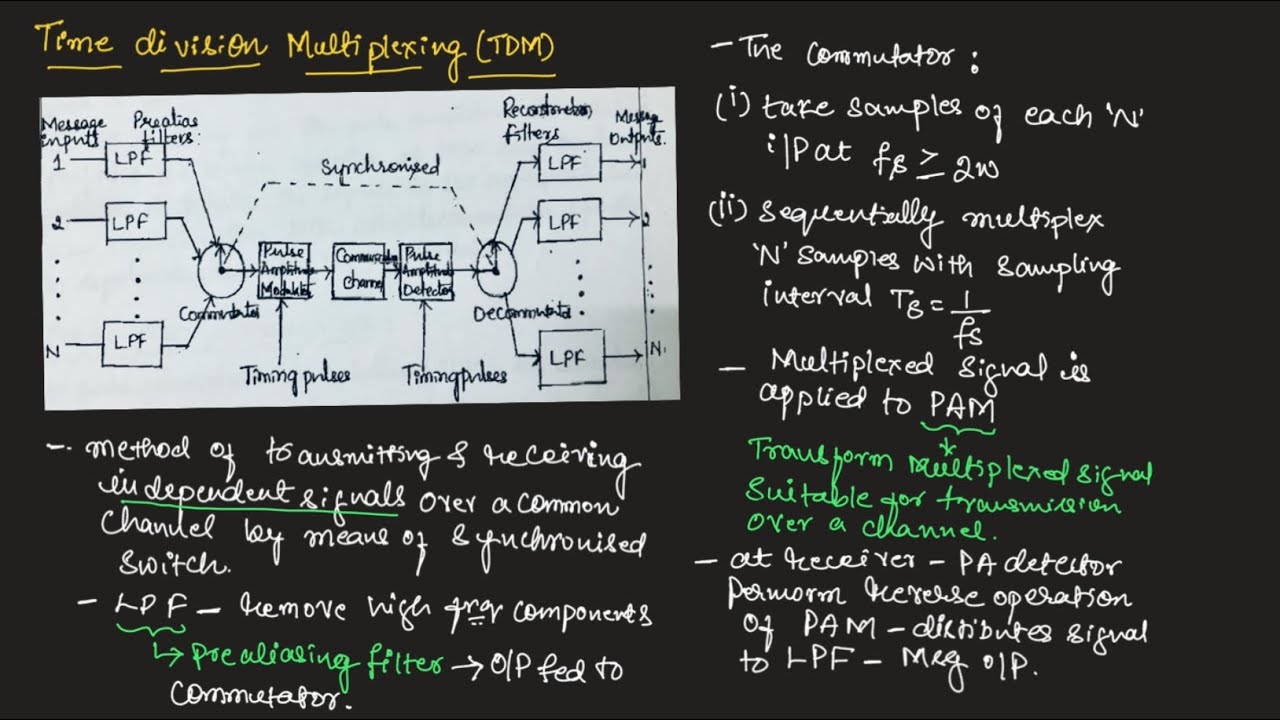 Time division Multiplexing (TDM)
Message inputs
Prealias filters:
Reconstruction filters
Message Outputs.
Synchronised
1
LPF
LPF
1
2
LPF
LPF
2
Pulse Amplitude Modulator
Communication channel
Pulse Amplitude Detector
Commutator
Decommutator
N
LPF
LPF
N.
Timing pulses
Timing pulses
- method of transmitting & receiving
independent signals over a common
channel by means of synchronised
switch.
- LPF - remove high freq components
↳ prealiasing filter → O/P fed to
commutator.
- The commutator:
(i) take samples of each 'N'
i/P at fs ≥ 2w
(ii) sequentially multiplex
'N' samples with sampling
interval Ts = 1/fs
- Multiplexed signal is
applied to PAM
Transform multiplexed signal
suitable for transmission
over a channel.
- at receiver - PA detector
permorm reverse operation
of PAM - distributes signal
to LPF - Msg O/P.